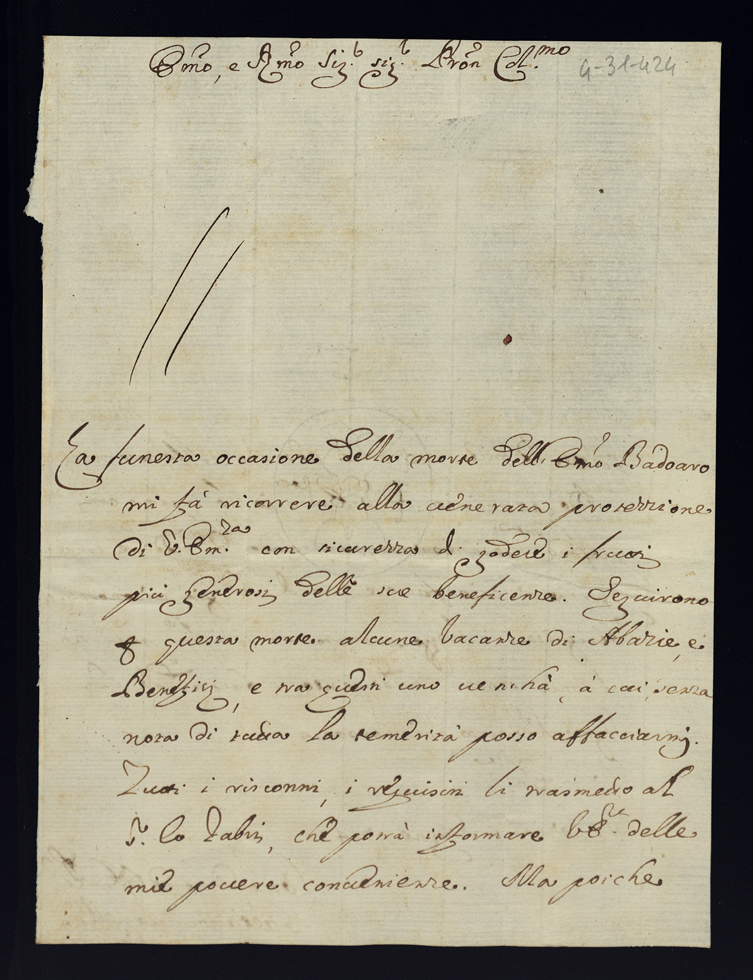 Emo, e Rmo Sig.r sig.r Pron Col.mo
4-31-424
La funesta occasione della morte dell'Emo Badoaro
mi fà ricorrere alla venerata protezzione
di V. Em.za con sicurezza di godere i frutti
più generosi delle sue beneficenze. Seguirono
questa morte alcune vacanze di Abazie, e
Benefizij, e tra questi uno ve n'hà, à cui, senza
nota di tutta la temerità posso affacciarmi.
Tutti i risconti, i requisiti li trasmetto al
S.r lo Fabri, che potrà informare delle
mie povere convenienze. Ma poiche